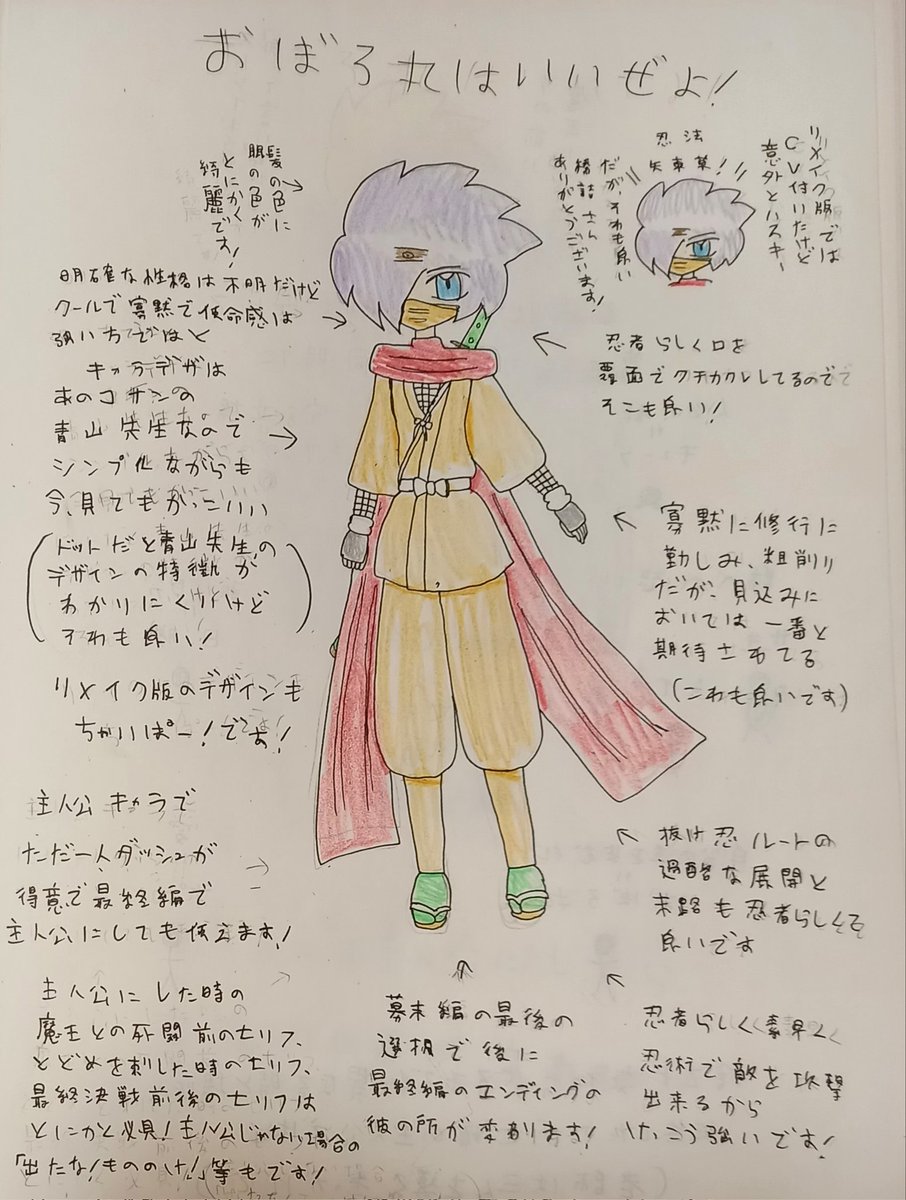 おぼろ丸はいいぜよ!
髪の色に
眼の色が
とにかく
綺麗です!
明確な性格は不明だけど
クールで寡黙で使命感は
強い方ではと
キャラデザは
あのコナンの
青山先生なので
シンプルながらも
今、見てもかっこいいい
(ドットだと青山先生の
デザインの特徴が
わかりにくいけど
それも良い!)
リメイク版のデザインも
ちゃいぱー!です!
主人公キャラで
ただ一人ダッシュが
得意で最終編で
主人公にしても使えます!
主人公にした時の
魔王との死闘前のセリフ、
とどめを刺した時のセリフ、
最終決戦前後のセリフは
とにかく必見!主人公じゃない場合の
「出たな!もののけ!」等もです!
リメイク版では
CV付いたけど
意外とハスキー
忍法
矢車草!!
だが、それも良い
橋詰さん
ありがとうございます!
忍者らしく口を
覆面でクチカクレしてるので
そこも良い!
寡黙に修行に
勤しみ、粗削り
だが、見込みに
おいては一番と
期待されてる
(これも良いです)
抜け忍ルートの
過酷な展開と
末路も忍者らしくて
良いです
幕末編の最後の
選択で後に
最終編のエンディングの
彼の所が変わります!
忍者らしく素早く
忍術で敵を攻撃
出来るから
けっこう強いです!